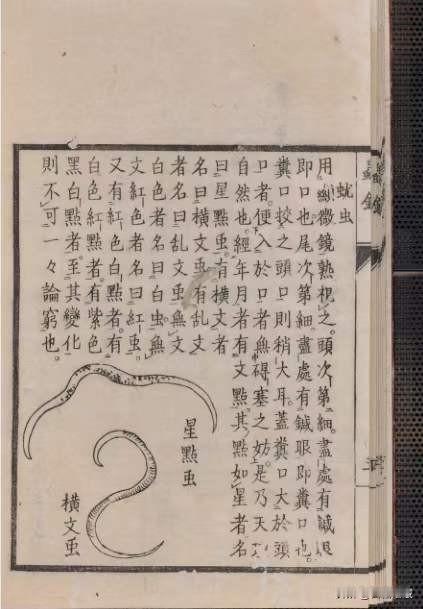 蚘虫
用微鏡熟視之。頭次第細。盡處有鍼眼
即口也尾次第細。盡處有鍼眼即糞口也。
糞口較之頭口則稍大耳蓋糞口大於頭
口者。便入於口者無碍塞之妨。是乃天
自然也。經年月者有文點。其點如星者名
曰星點䖝。有橫文者
名曰橫文䖝有乱文
者名曰乱文䖝無文
白色者名曰白䖝無
文紅色者名曰紅䖝。
又有紅色白點者。有
白色紅點者。有紫色
黑白點者。至其變化
則不可一々論窮也。
星點䖝
橫文䖝